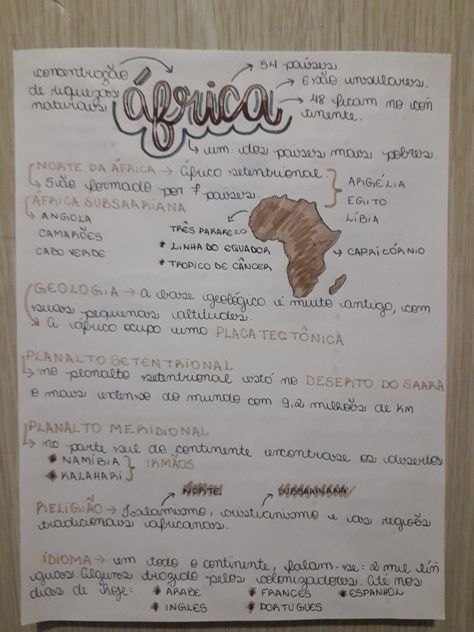 concentração
de riquezas
naturais
África
54 países
6 são insulares.
48 ficam no con
tinente.
um dos países mais pobres
NORTE DA ÁFRICA → África setentrional
São formado por 7 países.
ARGÉLIA
EGITO
LÍBIA
ÁFRICA SUBSAARIANA
ANGOLA
CAMARÕES
CABO VERDE
TRÊS PARARELO
* LINHA DO EQUADOR
* TROPICO DE CÂNCER
CAPRICÓRNIO
GEOLOGIA → a base geológica é muito antiga, com
suas pequenas altitudes.
a áfrica ocupa uma PLACA TECTÔNICA
PLANALTO SETENTRIONAL
no planalto setentrional está no DESERTO DO SAARA
o mais extenso do mundo com 9,2 milhões de KM
PLANALTO MERIDIONAL
na parte sul do continente encontrase os desertos
* NAMÍBIA
* KALAHARI
IRMÃOS
NORTE SUBSAARIANA
RELIGIÃO → Islamismo, cristianismo e as regiões
tradicionais africanas.
IDIOMA → em todo o continente, falam-se: 2 mil lín
guas. Alguns trazido pelos colonizadores. Até nos
dias de hoje: * ARABE * FRANCES * ESPANHOL
* INGLES * PORTUGUES